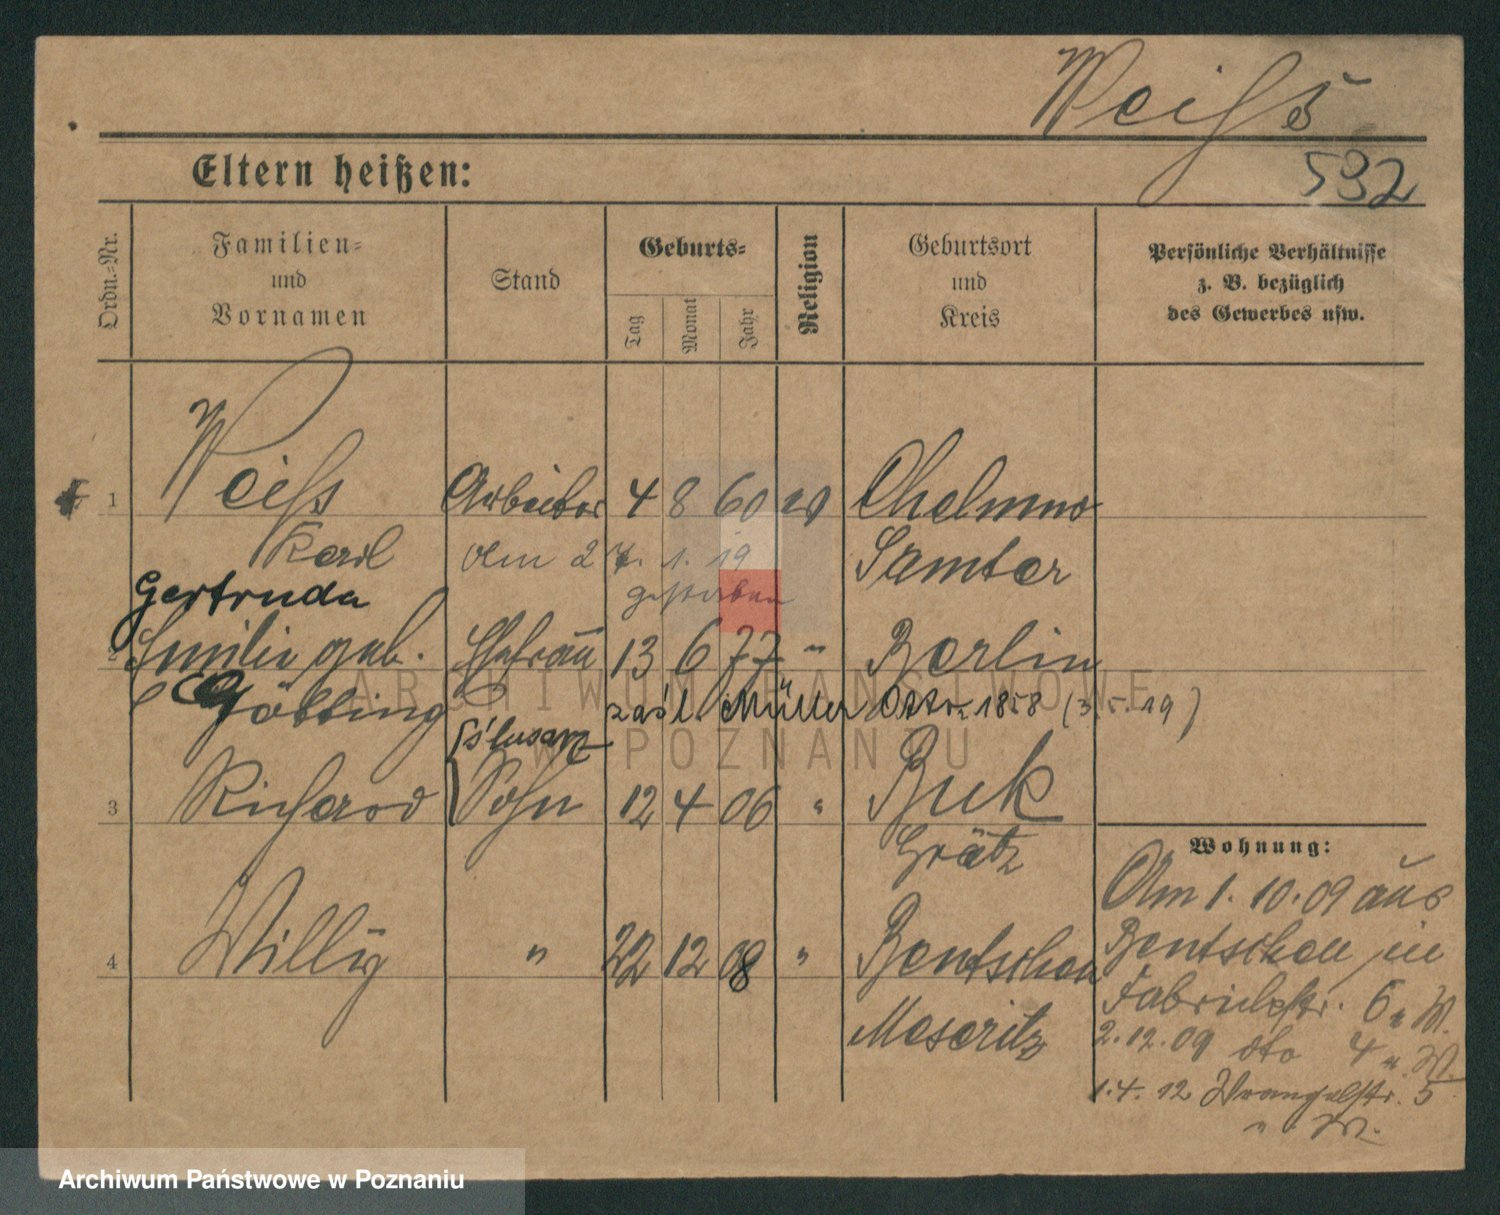 Weiß
532
Eltern heißen:
Ordn.=Nr.
Familien=
und
Vornamen
Stand
Geburts=
Tag
Monat
Jahr
Religion
Geburtsort
und
Kreis
Persönliche Verhältnisse
z. B. bezüglich
des Gewerbes usw.
1 Weiß Arbeiter 4 8 60 Chelmno
Karl am 27. 1. 19 Samter
gestorben
Gertruda
2 Emilie geb. Ehefrau 13 6 77 " Berlin
Götting zaśl. Müller Otto 1858 (3.5.19)
ślusarz
3 Richard Sohn 12 4 06 " Buk
Grätz
Wohnung:
Am 1. 10. 09 aus
4 Willy " 22 12 08 " Bentschen
Bentschen in
Fabrickstr. 6 W.
Meseritz
2. 12. 09 dto 4 W.
1. 4. 12 Wrangelstr. 5
ARCHIWUM PAŃSTWOWE
W POZNANIU
Archiwum Państwowe w Poznaniu